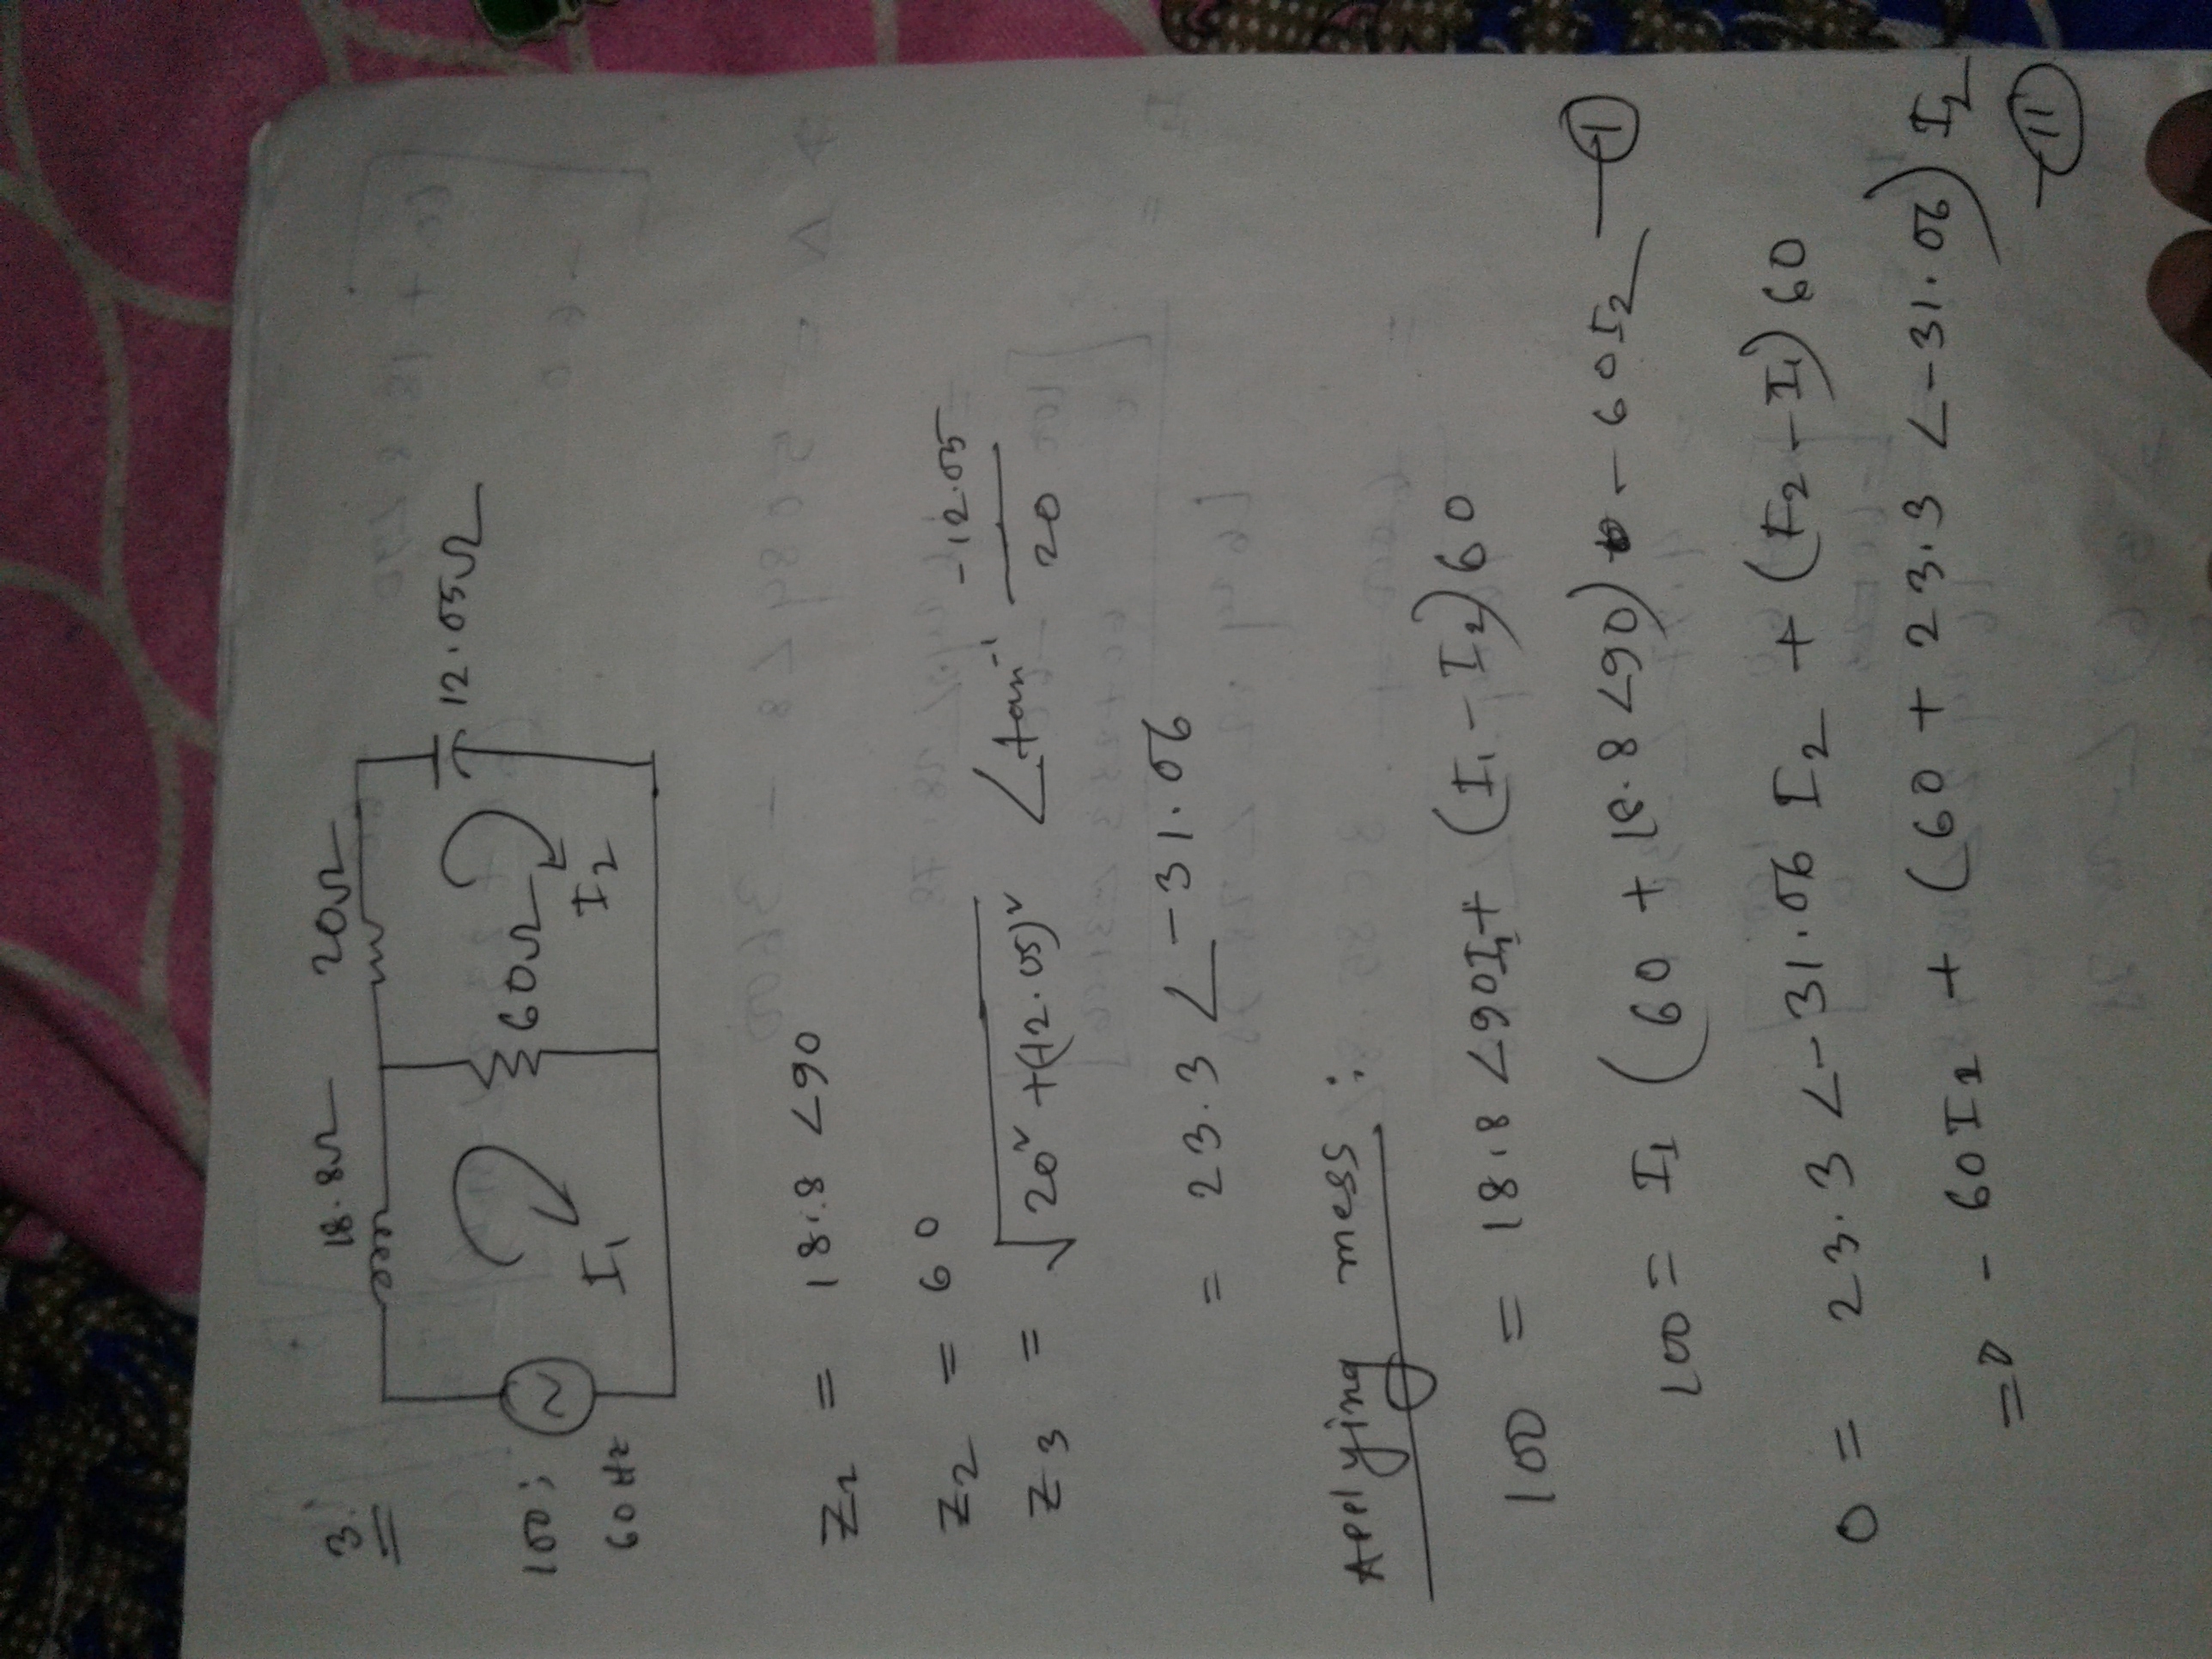 3.
18.8Ω 20Ω
12.05Ω
100;
60Ω
60 Hz
I₁ I₂
Z₁ = 18.8 ∠90
Z₂ = 60
Z₃ = √20² + (12.05)² ∠tan⁻¹ -12.05/20
= 23.3 ∠-31.06
Applying mess :
100 = 18.8 ∠90I₁ + (I₁ - I₂)60
100 = I₁ (60 + 18.8 ∠90) - 60I₂ — I
0 = 23.3 ∠-31.06 I₂ + (I₂ - I₁) 60
=0 - 60I₁ + (60 + 23.3 ∠-31.06) I₂
— II